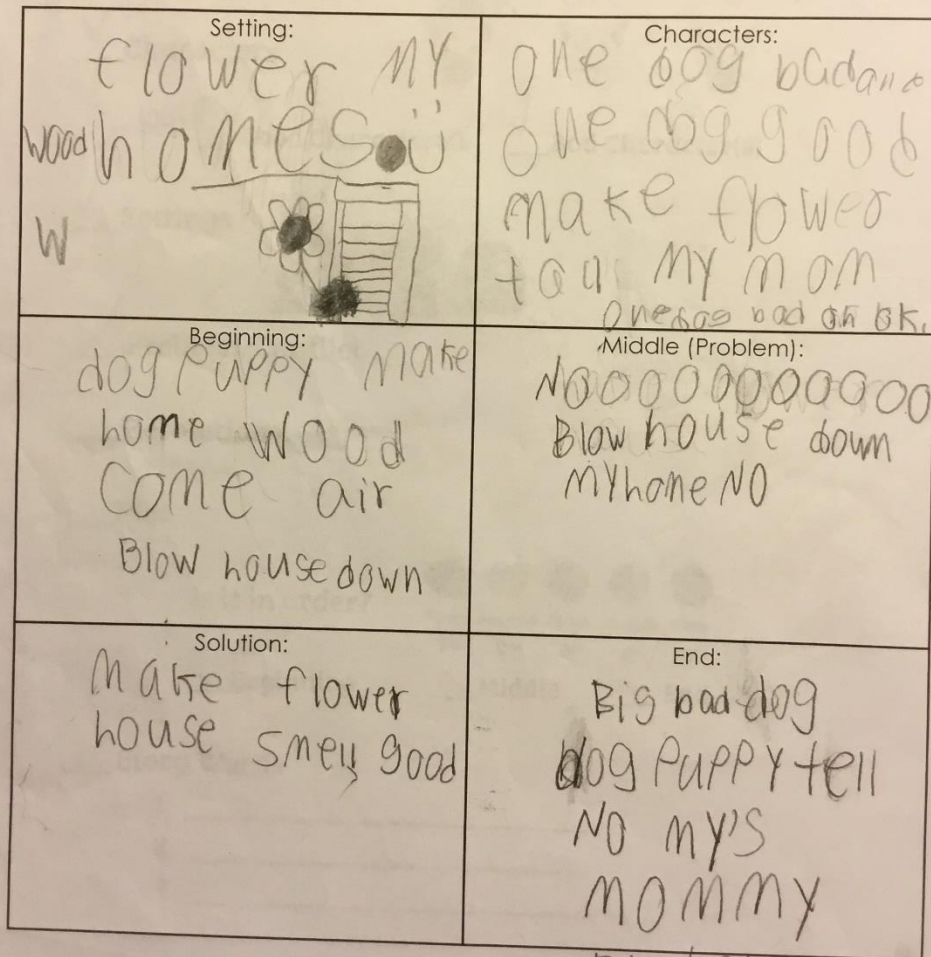 Setting:
flower my
wood homes
W
Characters:
one dog bad and
one dog good
make flower
my mom
one dog bad ok.
Beginning:
dog puppy make
home wood
come air
Blow house down
Middle (Problem):
NOOOOOOOOOOO
Blow house down
my home NO
Solution:
make flower
house smell good
End:
Big bad dog
dog puppy tell
NO my's
mommy